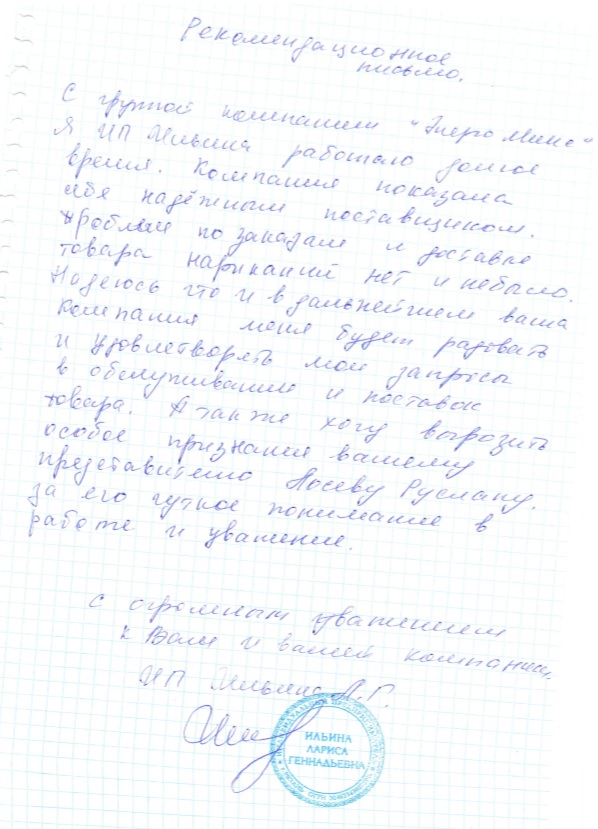 Рекомендационное
письмо.
С группой компании "Энерго Микс"
Я ИП Ильина работаю долгое
время. Компания показала
себя надёжным поставщиком.
проблем по заказам и доставке
товара нариканий нет и небыло.
Надеюсь что и в дальнейшем ваша
компания меня будет радовать
и удовлетворять мои запросы
в обслуживании и поставок
товара. А так же хочу вырозить
особое признания вашему
представителю Руслану.
за его чуткое понимание в
работе и уважение.
с огромным уважением
к Вам и вашей компании.
ИП Ильина Л.Г.
ИНДИВИДУАЛЬНЫЙ ПРЕДПРИНИМАТЕЛЬ
ИЛЬИНА
ЛАРИСА
ГЕННАДЬЕВНА